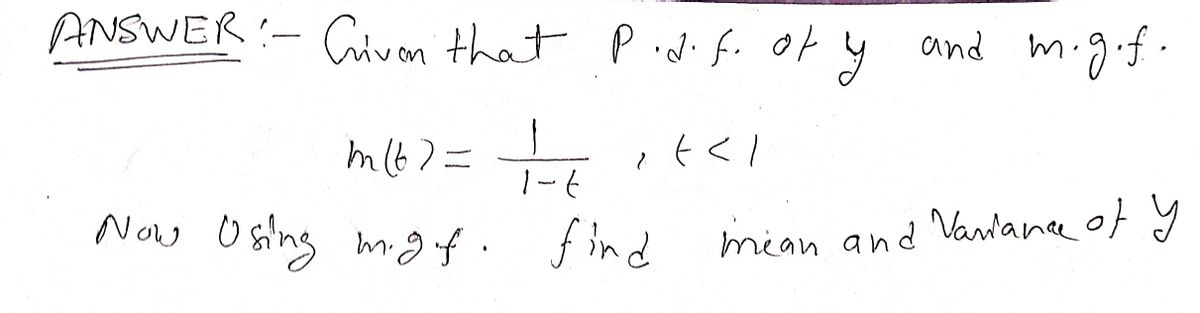 ANSWER :- Given that P.d.f. of y and m.g.f.
m(t) = 1/(1-t) , t < 1
Now Using m.g.f. find mean and Variance of y